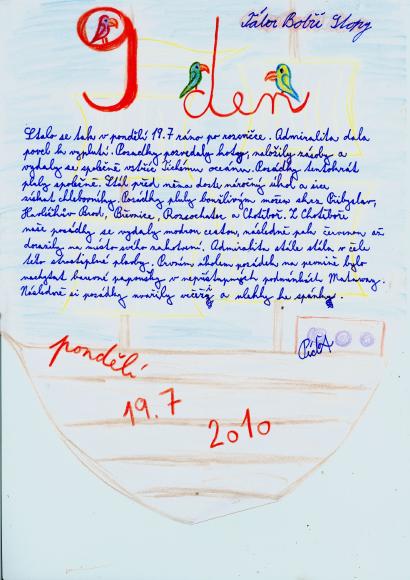 Tábor Bobří Stopy
9 den
Stalo se tak v pondělí 19.7 ráno po rozcvičce. Admiralita dala
povel k vyplutí. Posádky pozvedaly kotvy, naložily zásoby a
vydaly se společně vstříc Tichému oceánu. Posádky tentokrát
pluly společně. Stál před nima dosti náročný úkol a sice
získat chlebovníky. Posádky pluly bouřlivým mořem skrz Přibyslav,
Havlíčkův Brod, Bižnice, Rozsochatec a Chotěboř. Z Chotěboře
naše posádky se vydaly modrou cestou, následně pak červenou až
dorazily na místo svého zakotvení. Admiralita stále stála v čele
této strastiplné plavby. Prvním úkolem posádek na pevnině bylo
nachytat barevné papoušky v nepřístupných podmínkách
Následně si posádky uvařily večeři a ulehly ke spánku.
pondělí
19.7
2010